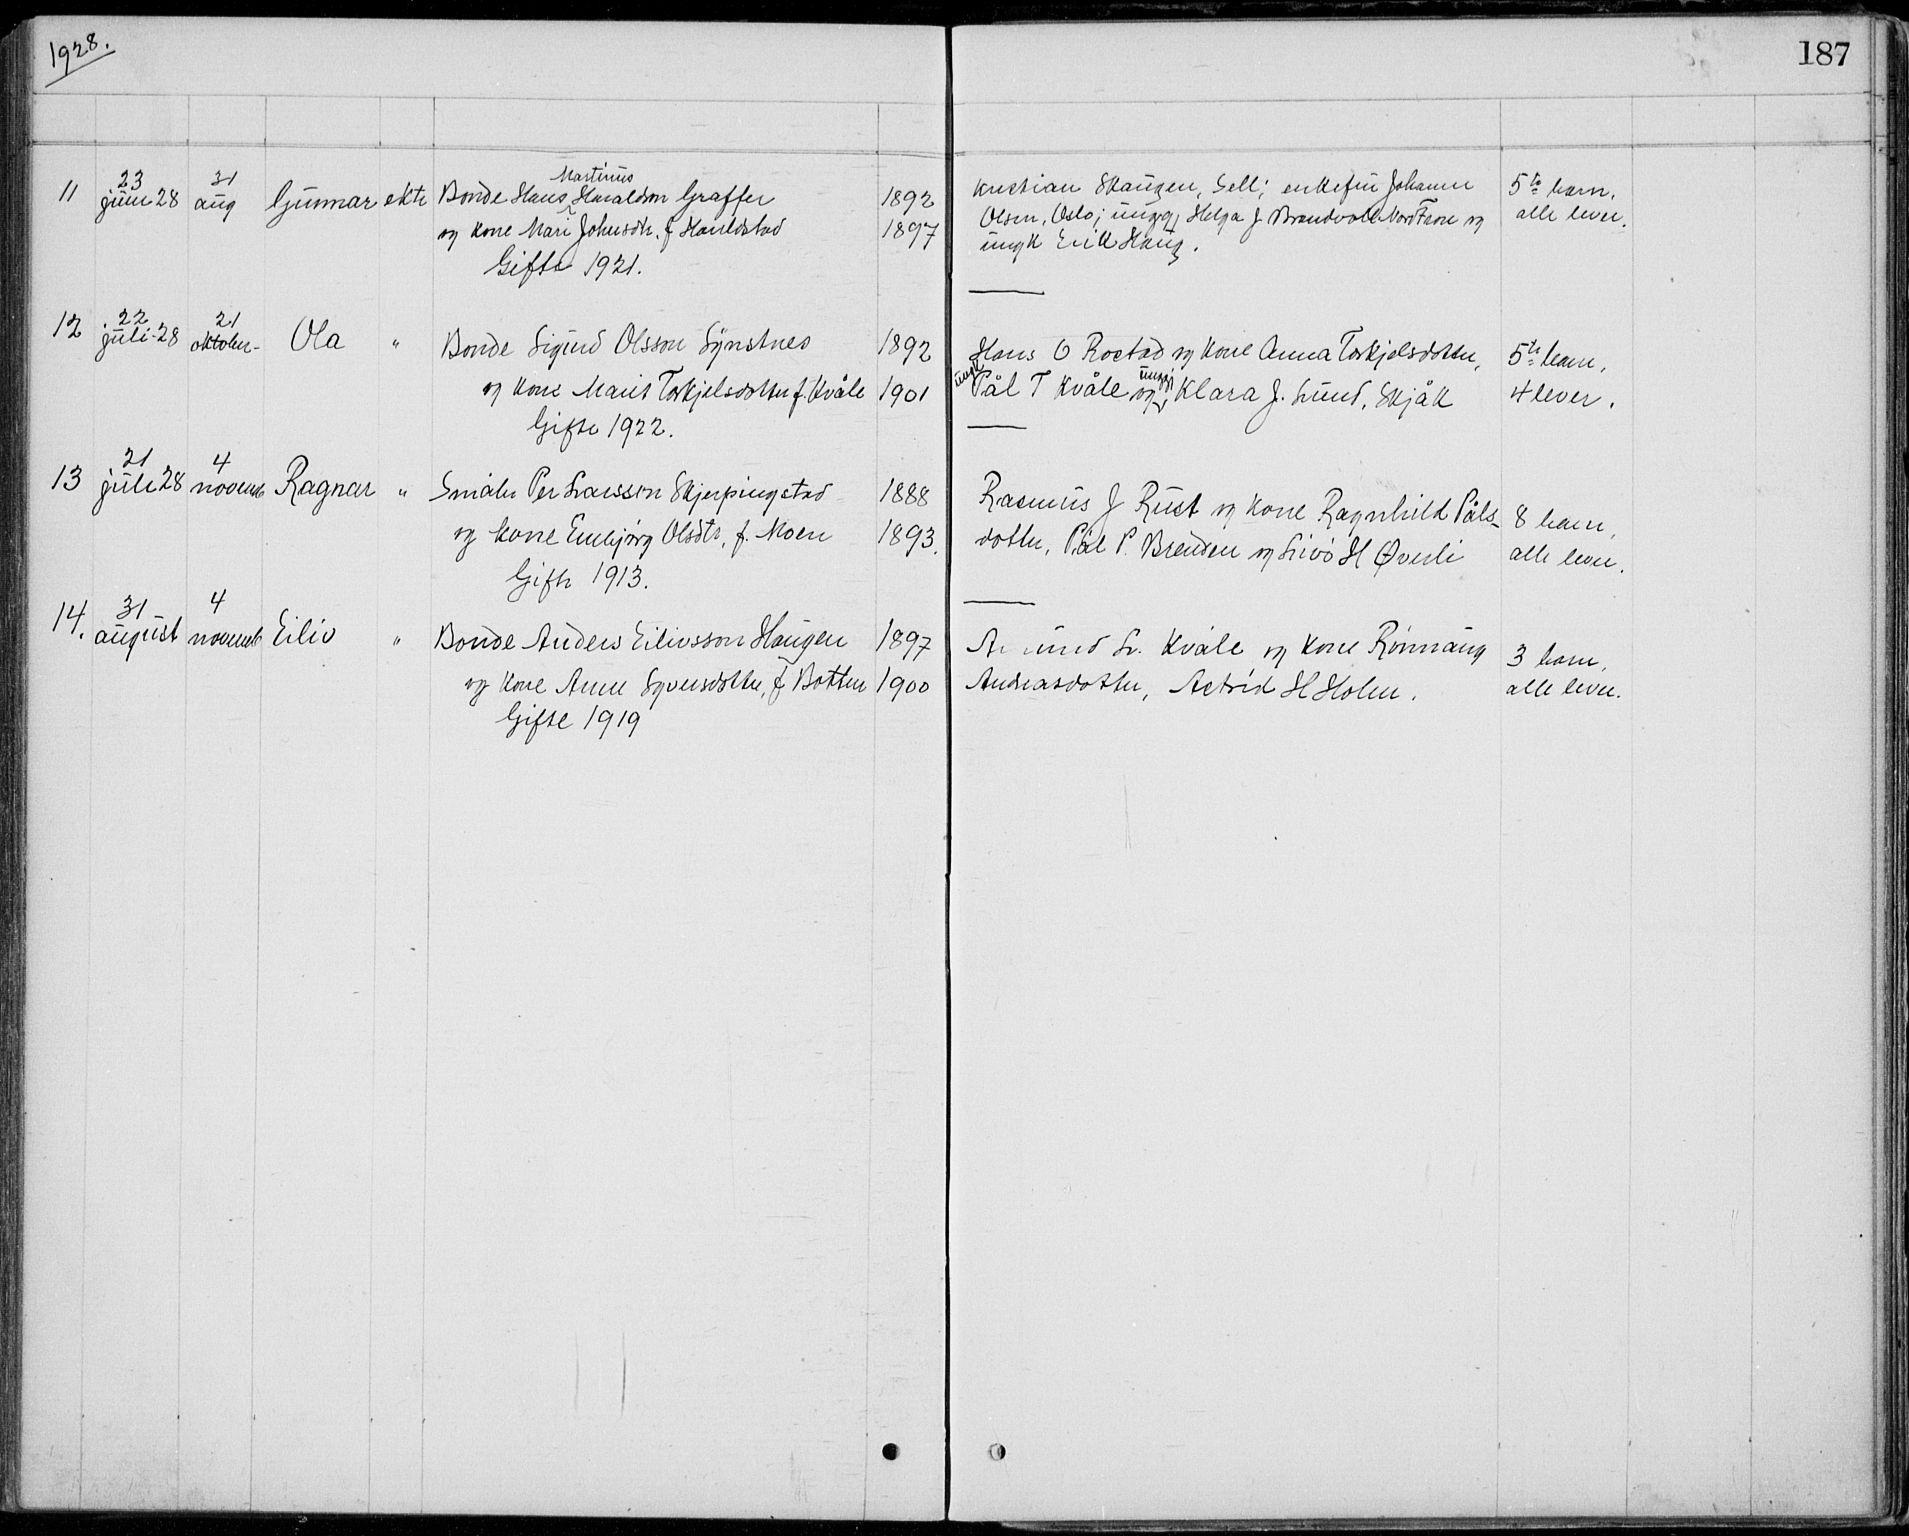 1928.
187
11 23 juni 28 31 aug Gunnar ekte Bonde Hans Martinus Haraldson Graffer 1892
og kone Mari Johnsdtr. f. 1897
Gifte 1921.
Kristian Skaugen, Sell; enkefru Johanne
Olsen, Oslo; ungg, Helga J Brandvoll Nord Fron og
ungk Erik Haug.
5te barn,
alle lever.
12 22 juli 28 21 oktober Ola " Bonde Sigurd Olsson Synstnes 1892
og kone Marit Torkjelsdotter f. Kvåle 1901
Gifte 1922.
Hans O Rostad og kone Anna Torkjelsdotter,
ungk Pål T Kvåle og ungg. Klara J. Lund, Skjåk
5te barn,
4 lever.
13 21 juli 28 4 novemb Ragnar " Småbr Per Larsson Skjerpingstad 1888
og kone Embjørg Olsdtr, f. Moen 1893.
Gifte 1913.
Rasmus J Rust og kone Ragnhild Påls-
dotter, Pål P. Brenden og Livö H Øverli
8 barn,
alle lever.
14. 31 august 4 novemb Eiliv " Bonde Anders Eilivsson Haugen 1897
og kone Anne Syversdotter, f Botten 1900
Gifte 1919
Amund L. Kvåle og kone Rønnaug
Andreasdotter, Astrid H Holen.
3 barn,
alle lever.